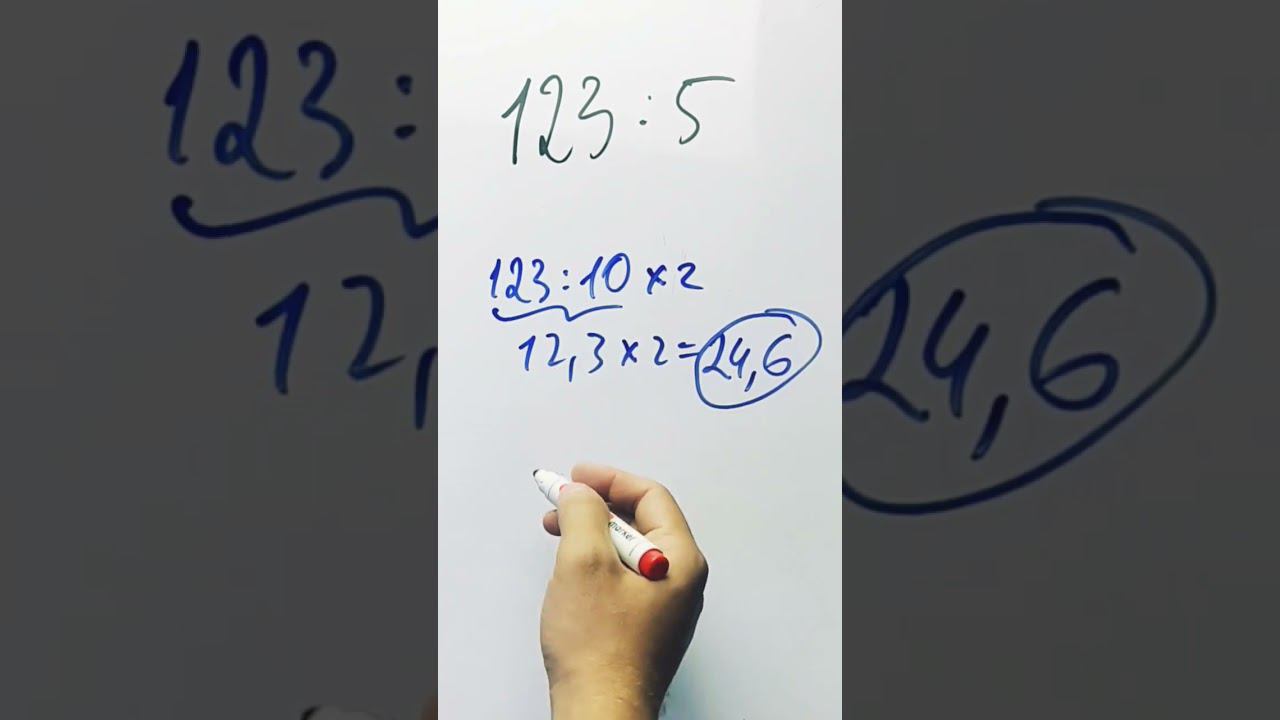 123:5
123:10×2
12,3×2=24,6
marker